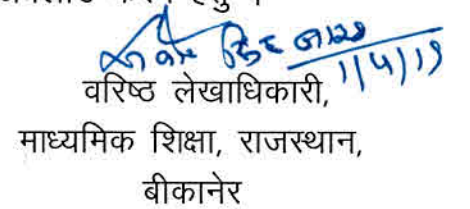 करने हेतु
1/4/19
वरिष्ठ लेखाधिकारी,
माध्यमिक शिक्षा, राजस्थान,
बीकानेर